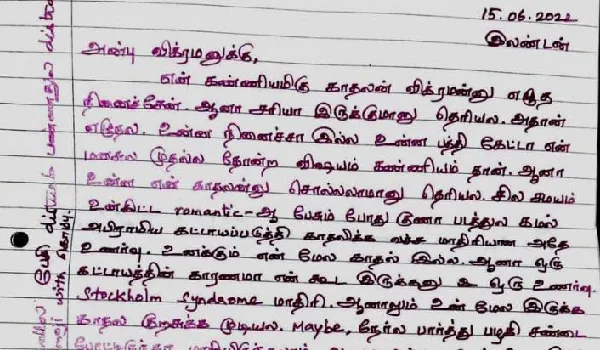 15.06.2022
இலண்டன்
அன்பு விக்ரமனுக்கு,
என் கண்ணியமிகு காதலன் விக்ரமன்னு எழுத
நினைச்சேன். ஆனா சரியா இருக்குமானு தெரியல. அதான்
எழுதல. உன்ன நினைச்சா இல்ல உன்ன பத்தி கேட்டா என்
மனசுல முதல்ல தோன்ற விஷயம் கண்ணியம் தான். ஆனா
உன்ன என் காதலன்னு சொல்லலாமானு தெரியல. சில சமயம்
உன்கிட்ட romantic-ஆ பேசும் போது குணா படத்துல கமல்
அபிராமிய கட்டாயப்படுத்தி காதலிக்க வச்ச மாதிரியான அதே
உணர்வு. உனக்கும் என் மேல காதல் இல்ல. ஆனா ஒரு
கட்டாயத்தின் காரணமா என் கூட இருக்கனு ஒரு உணர்வு.
Stockholm Syndrome மாதிரி. ஆனாலும் உன் மேல இருக்க
காதல குறைக்க முடியல. Maybe, நேர்ல பார்த்து பழகி சண்டை